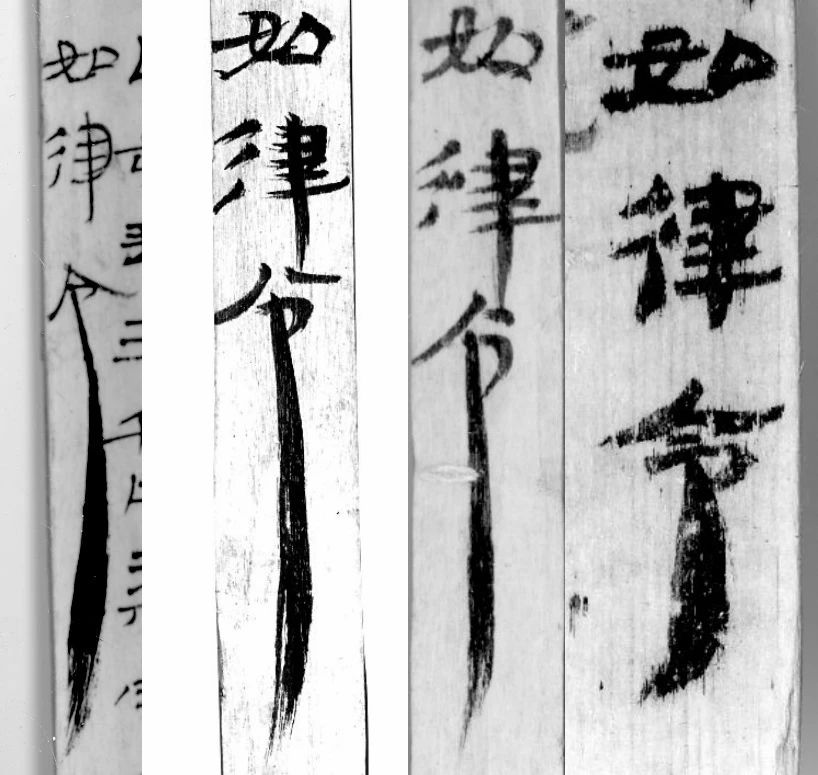 如律令
如律令
如律令
如律令